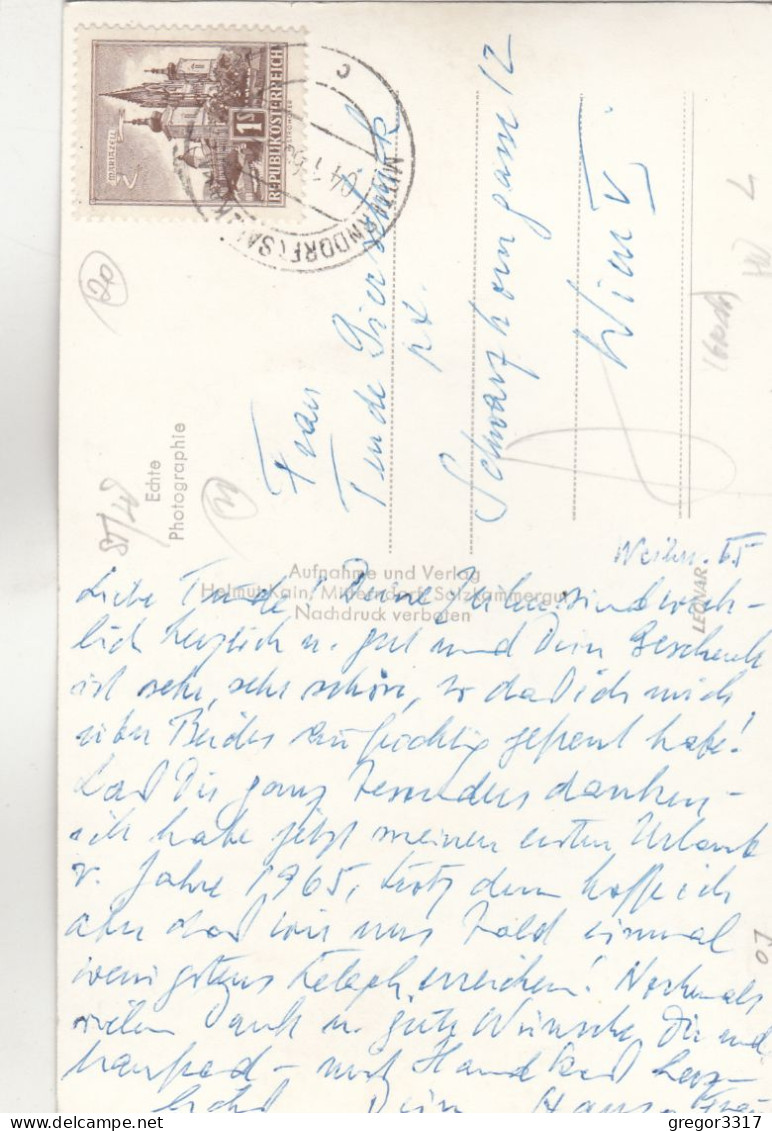 MARIAZELL
1 S
REPUBLIK ÖSTERREICH
MITTERNDORF (SALZK
c
Frau
Trude
Schwarzhorngasse 12
Wien V
Echte
Photographie
Aufnahme und Verlag
Helmut Kain, Mitterndorf, Salzkammergut
Nachdruck verboten
LEONAR
Weihn. 65
Liebe Trude! Deine sind wirk-
lich herzlich u. gut und Dein Geschenk
ist sehr, sehr schön, so daß ich mich
über Beides aufrichtig gefreut habe!
Laß Dir ganz besonders danken –
ich habe jetzt meinen ersten Urlaub
v. Jahre 1965, trotzdem hoffe ich
aber daß wir uns bald einmal
wenigstens teleph. erreichen! Nochmals
vielen Dank u. gute Wünsche Dir und
– mit Handkuß herz-
lichst Dein Hans
gregor3317